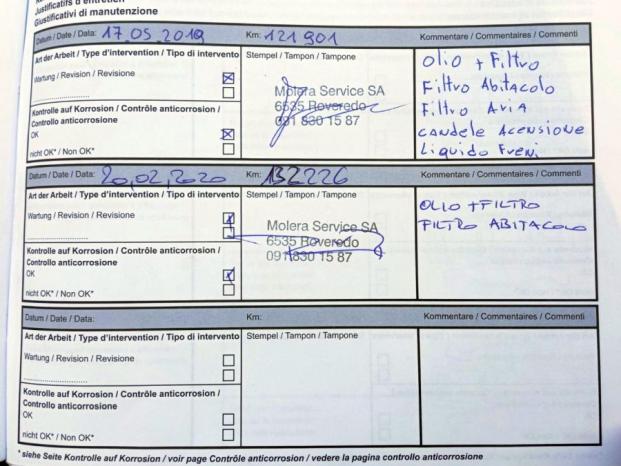 Justificatifs d'entretien
Giustificativi di manutenzione
Datum / Date / Data: 17 05 2019 Km: 121 901 Kommentare / Commentaires / Commenti
Art der Arbeit / Type d'intervention / Tipo di intervento Stempel / Tampon / Tampone
Wartung / Revision / Revisione
Kontrolle auf Korrosion / Contrôle anticorrosion / Controllo anticorrosione
OK
nicht OK* / Non OK*
Molera Service SA
6535 Roveredo
091 830 15 87
Olio + Filtro
Filtro Abitacolo
Filtro Aria
Candele Acensione
Liquido Freni
Datum / Date / Data: 20,02,2020 Km: 132226 Kommentare / Commentaires / Commenti
Art der Arbeit / Type d'intervention / Tipo di intervento Stempel / Tampon / Tampone
Wartung / Revision / Revisione
Kontrolle auf Korrosion / Contrôle anticorrosion /
Controllo anticorrosione
OK
nicht OK* / Non OK*
Molera Service SA
6535 Roveredo
091 830 15 87
OLIO + FILTRO
FILTRO ABITACOLO
Datum / Date / Data: Km: Kommentare / Commentaires / Commenti
Art der Arbeit / Type d'intervention / Tipo di intervento Stempel / Tampon / Tampone
Wartung / Revision / Revisione
Kontrolle auf Korrosion / Contrôle anticorrosion /
Controllo anticorrosione
OK
nicht OK* / Non OK*
* siehe Seite Kontrolle auf Korrosion / voir page Contrôle anticorrosion / vedere la pagina controllo anticorrosione